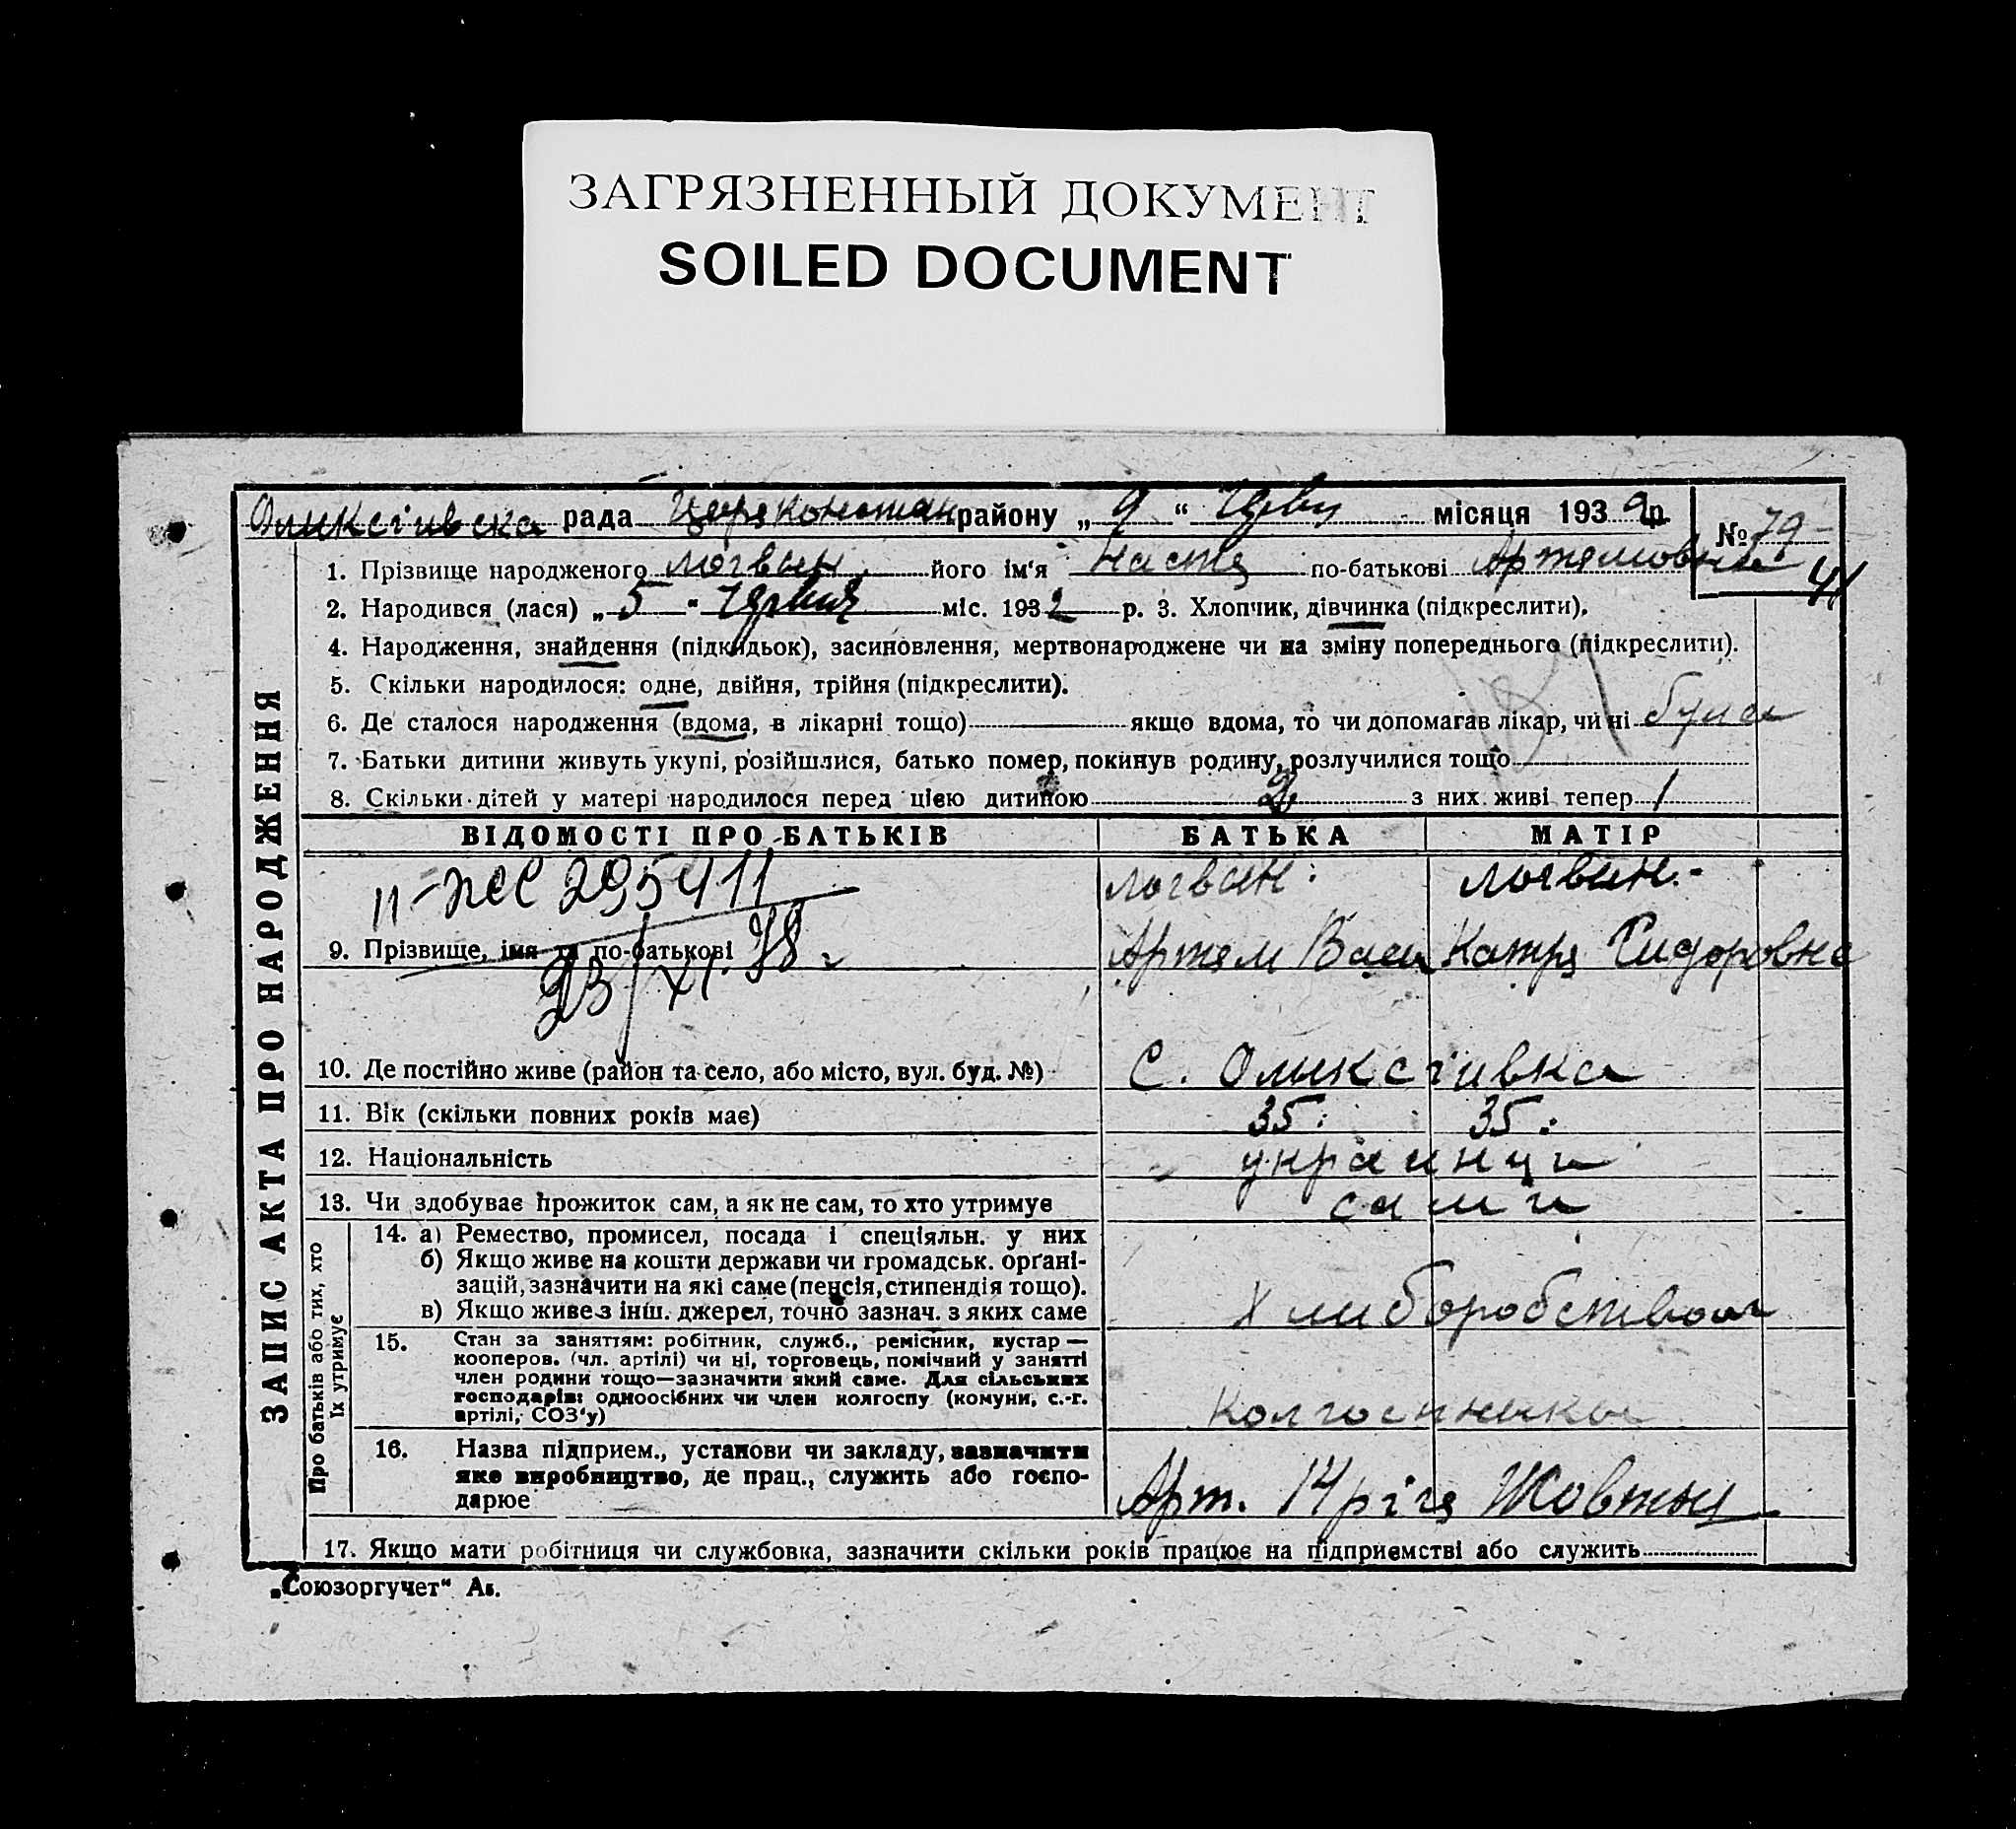 ЗАГРЯЗНЕННЫЙ ДОКУМЕНТ
SOILED DOCUMENT
Оликсіивска рада Царяконстан району „ 9 “ Черв місяця 1932 р. № 79
41
1. Прізвище народженого Логвин його ім'я Настя по-батькові Артемовна
2. Народився (лася) „ 5 “ Червня міс. 1932 р. 3. Хлопчик, дівчинка (підкреслити).
4. Народження, знайдення (підкидьок), засиновлення, мертвонароджене чи на зміну попереднього (підкреслити).
5. Скільки народилося: одне, двійня, трійня (підкреслити).
6. Де сталося народження (вдома, в лікарні тощо) якщо вдома, то чи допомагав лікар, чи ні
7. Батьки дитини живуть укупі, розійшлися, батько помер, покинув родину, розлучилися тощо
8. Скільки дітей у матері народилося перед цією дитиною 2 з них живі тепер 1
ЗАПИС АКТА ПРО НАРОДЖЕННЯ
ВІДОМОСТІ ПРО БАТЬКІВ БАТЬКА МАТІР
295411 Логвин: Логвин.-
9. Прізвище, імя та по-батькові Артем Васи Катря Сидоровна
23/XI.78 г
10. Де постійно живе (район та село, або місто, вул. буд. №) С. Оликсіивка
11. Вік (скільки повних років має) 35: 35:
12. Національність украинци
13. Чи здобуває прожиток сам, а як не сам, то хто утримує сами
Про батьків або тих, хто їх утримує
14. а) Ремество, промисел, посада і спеціяльн. у них
б) Якщо живе на кошти держави чи громадськ. орґані-
зацій, зазначити на які саме (пенсія, стипендія тощо).
в) Якщо живе з інш. джерел, точно зазнач. з яких саме Хлиборобством
15. Стан за заняттям: робітник, служб., ремісник, кустар —
кооперов. (чл. артілі) чи ні, торговець, помічний у занятті
член родини тощо—зазначити який саме. Для сільських
господарів: одноосібних чи член колгоспу (комуни, с.-г.
артілі, СОЗ'у) Колгоспники
16. Назва підприєм., установи чи закладу, зазначити
яке виробництво, де прац., служить або госпо-
дарює Арт. 14 річя Жовтны
17. Якщо мати робітниця чи службовка, зазначити скільки років працює на підприємстві або служить
„Союзоргучет“